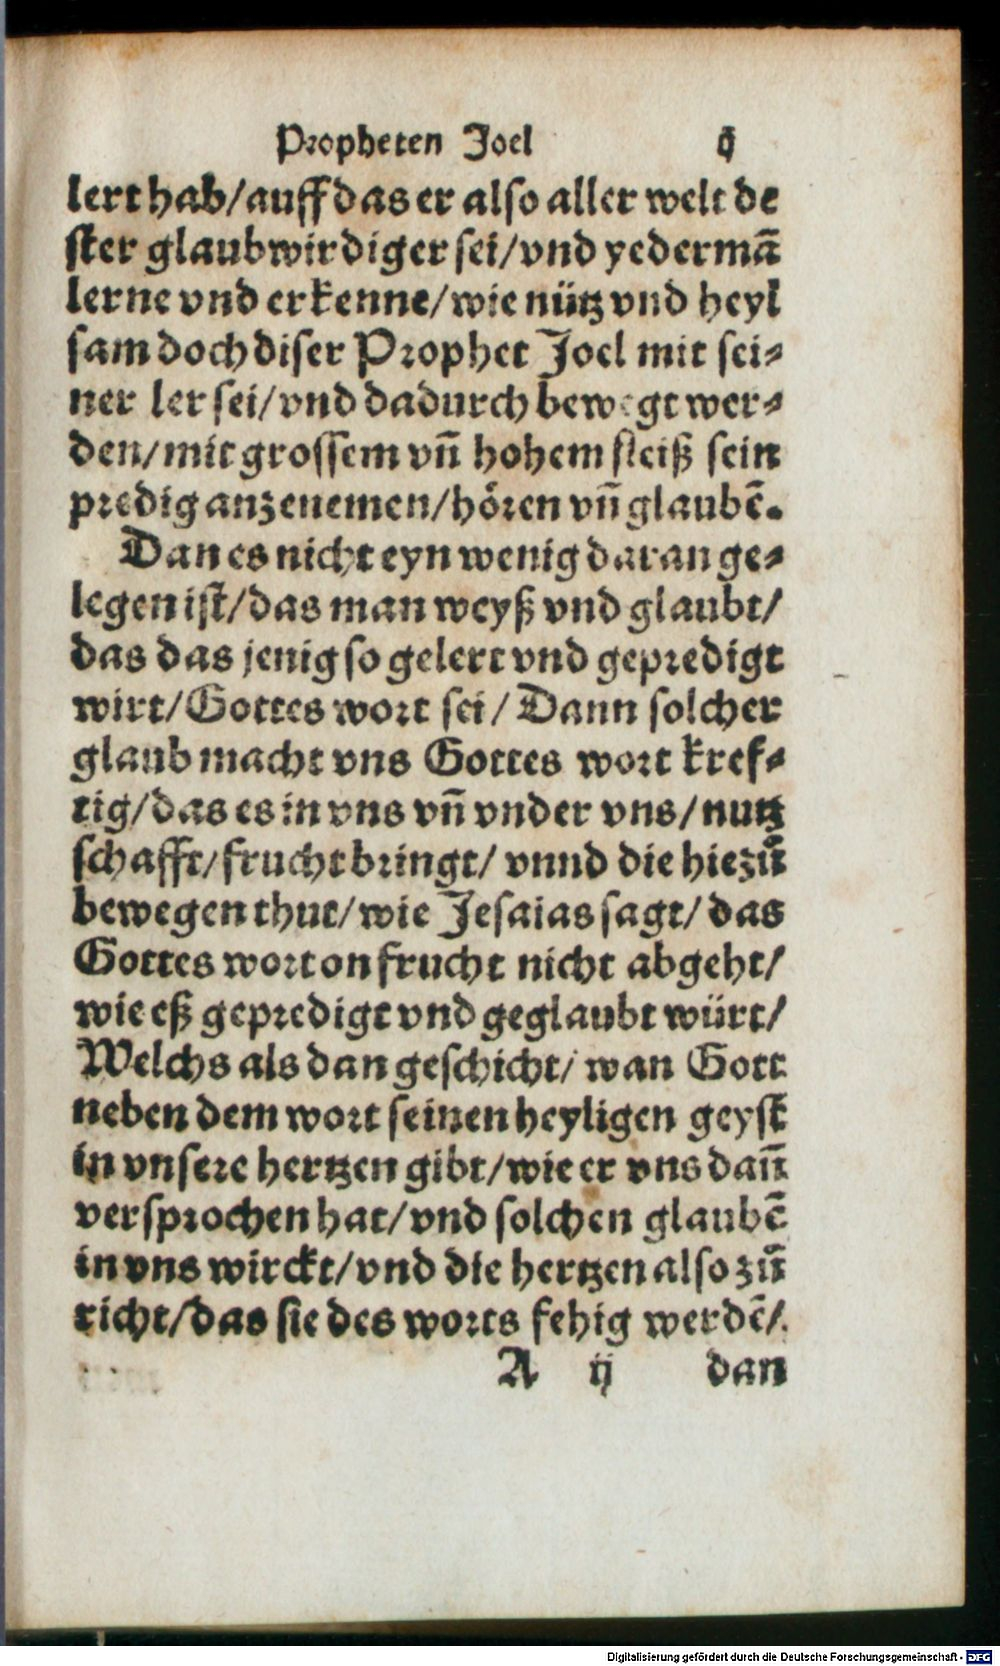 Propheten Joel ij
lert hab/auff das er also aller welt de
ster glaubwirdiger sei/vnd yedermā
lerne vnd erkenne/wie nütz vnd heyl
sam doch diser Prophet Joel mit sei⸗
ner ler sei/vnd dadurch bewegt wer⸗
den/mit grossem vn̄ hohem fleiß sein
predig anzenemen/hören vn̄ glaubē.
Dan es nicht eyn wenig daran ge⸗
legen ist/das man weyß vnd glaubt/
das das jenig so gelert vnd gepredigt
wirt/Gottes wort sei/Dann solcher
glaub macht vns Gottes wort kref⸗
tig/das es in vns vn̄ vnder vns/nutz
schafft/frucht bringt/vnnd die hiezū
bewegen thut/wie Jesaias sagt/das
Gottes wort on frucht nicht abgeht/
wie eß gepredigt vnd geglaubt würt/
Welchs als dan geschicht/wan Gott
neben dem wort seinen heyligen geyst
in vnsere hertzen gibt/wie er vns dañ
versprochen hat/vnd solchen glaubē
in vns wirckt/vnd die hertzen also zū
richt/das sie des worts fehig werdē/
A ij dan
Digitalisierung gefördert durch die Deutsche Forschungsgemeinschaft - DFG